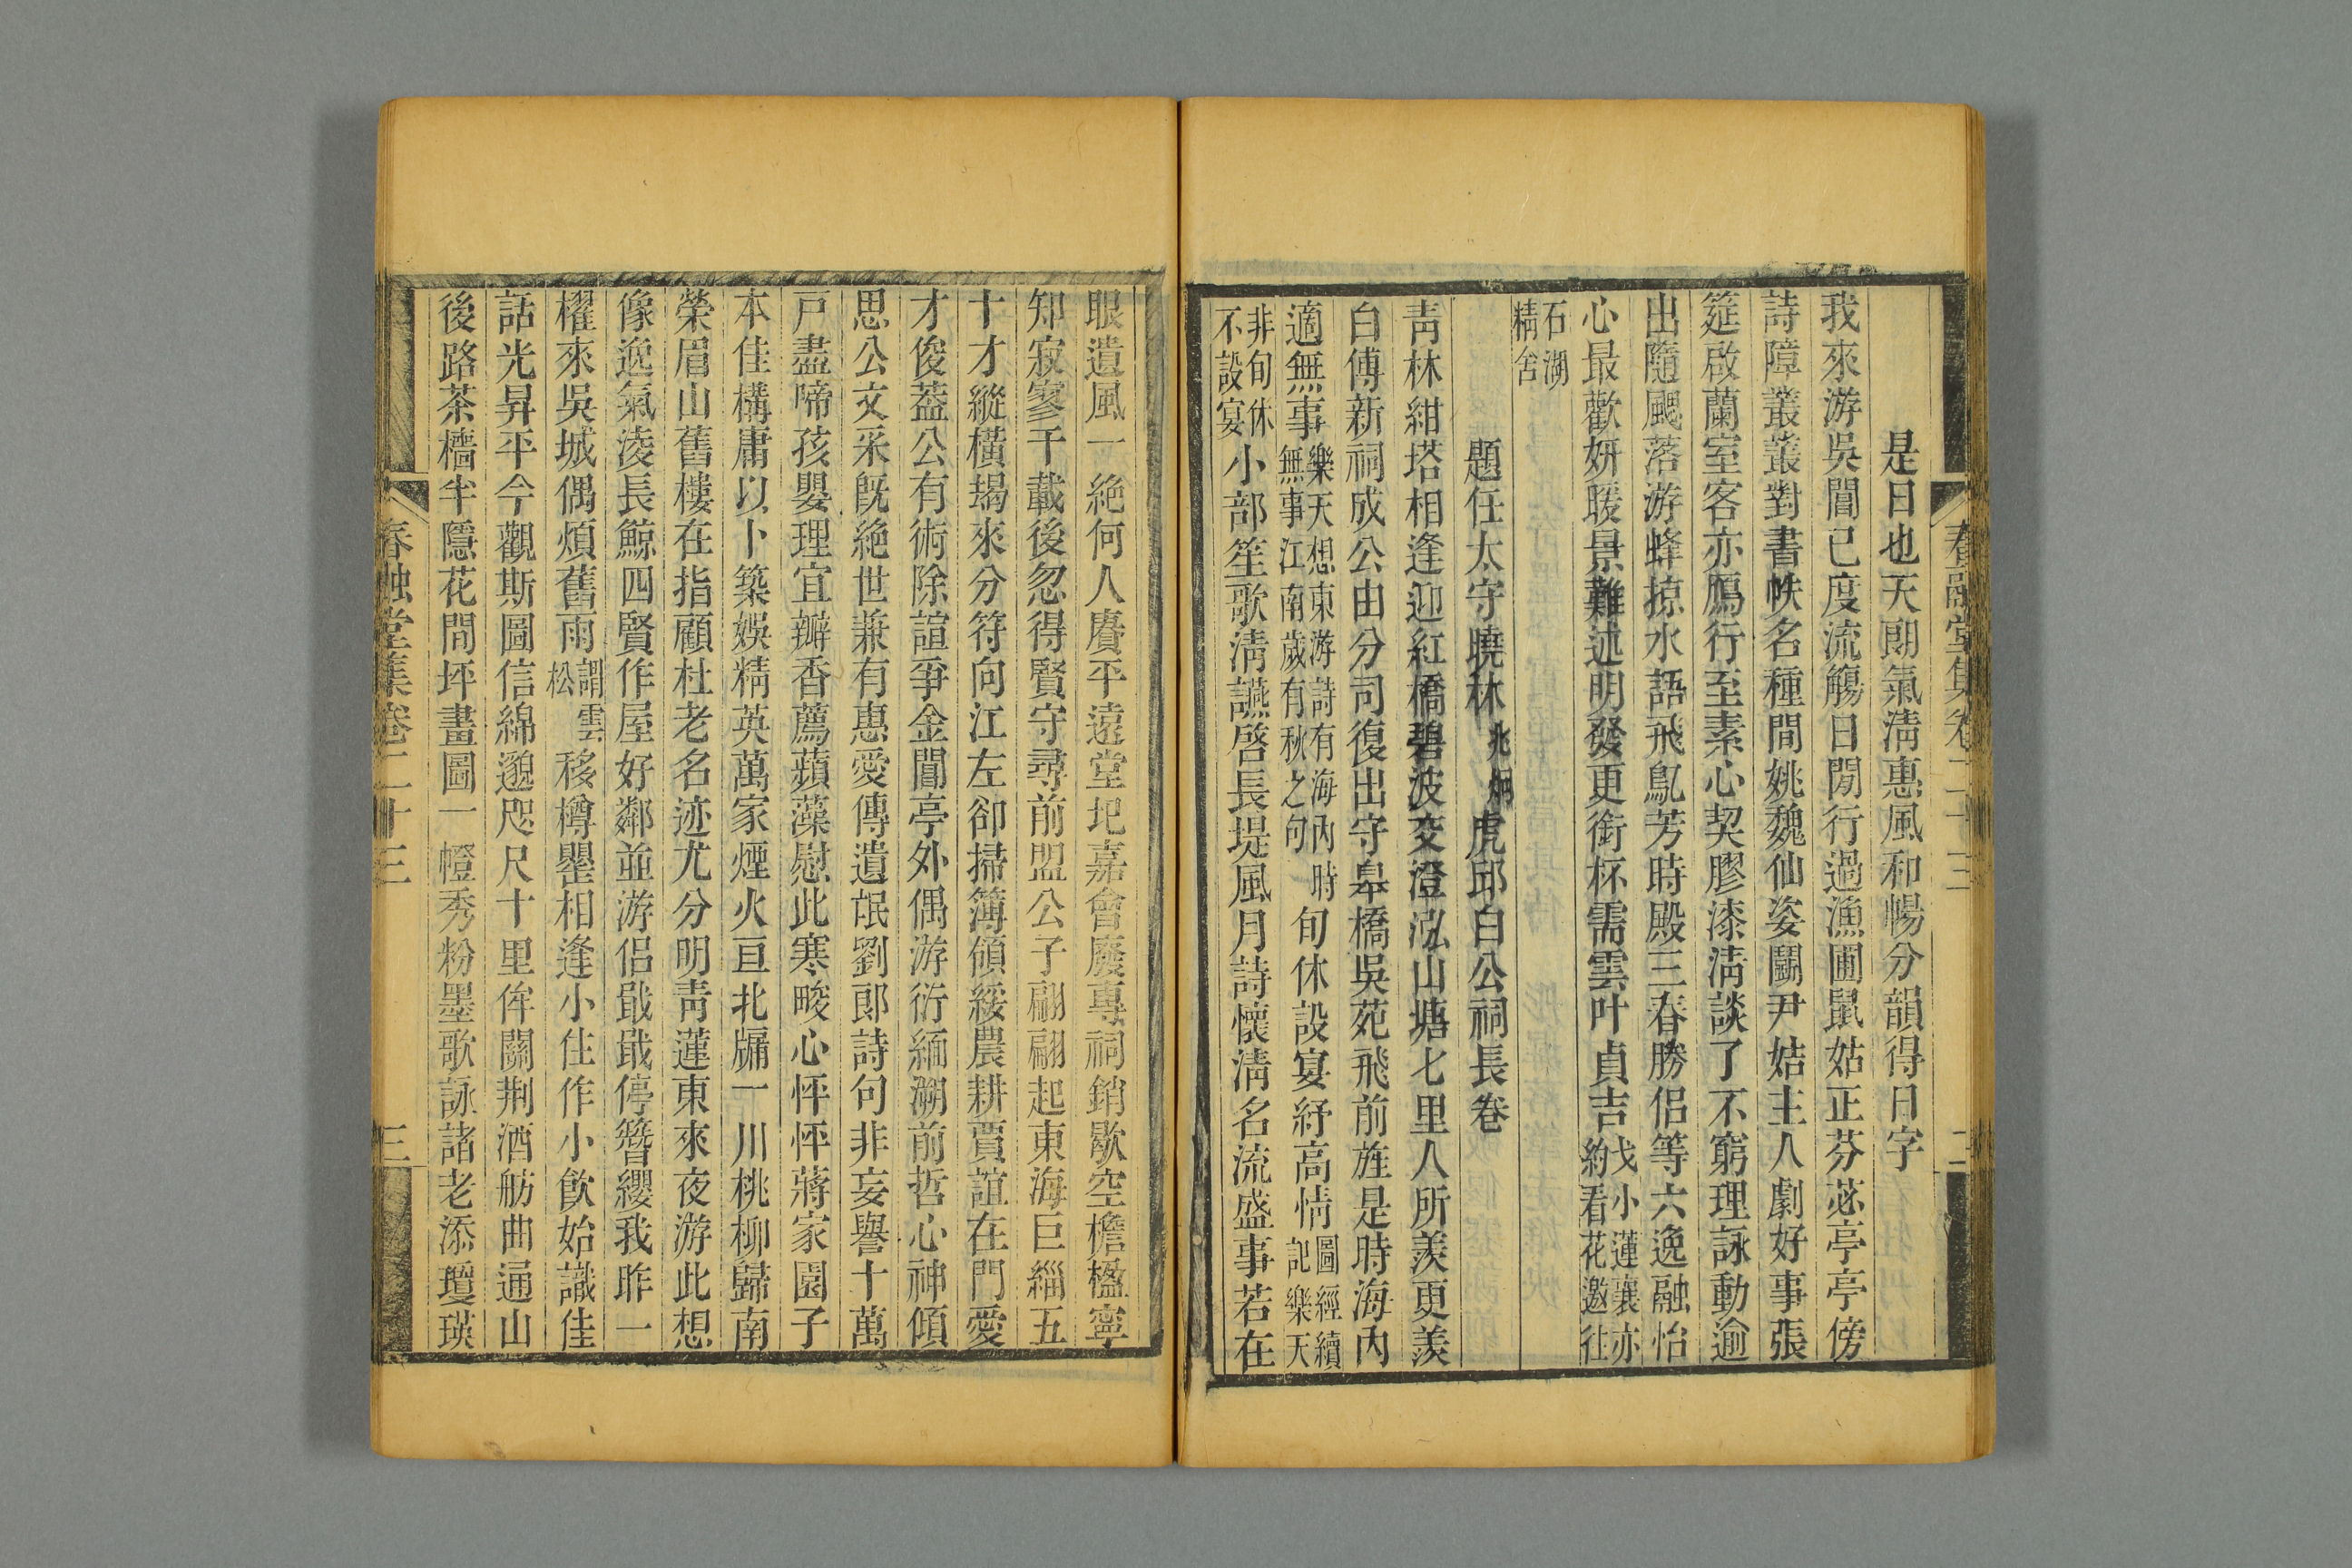 春融堂集卷二十三 二
是日也天朗氣淸惠風和暢分韻得日字
我來游吳閶已度流觴日閒行過漁圃鼠姑正芬苾亭亭傍
詩障叢叢對書帙名種間姚魏仙姿鬭尹姞主人劇好事張
筵啟蘭室客亦鴈行至素心契膠漆淸談了不窮理詠動逾
出隨颸落游蜂掠水語飛鳦芳時殿三春勝侶等六逸融怡
心最歡妍暖景難述明發更銜杯需雲叶貞吉戈小蓮襄亦約看花邀往
石湖精舍
題任太守曉林兆炯虎邱白公祠長卷
靑林紺塔相逢迎紅橋碧波交澄泓山塘七里人所羨更羨
白傅新祠成公由分司復出守皐橋吳苑飛前旌是時海內
適無事樂天想東游詩有海內時無事江南歲有秋之句旬休設宴紓高情圖經續記樂天
非旬休不設宴小部笙歌淸讌啓長堤風月詩懷淸名流盛事若在
眼遺風一絶何人賡平遠堂圯嘉會廢專祠銷歇空檐楹寧
知寂寥千載後忽得賢守尋前盟公子翩翩起東海巨緇五
十才縱橫朅來分符向江左卻掃簿領綏農耕賈誼在門愛
才俊葢公有術除諠爭金閶亭外偶游衍緬溯前哲心神傾
思公文采旣絶世兼有惠愛傳遺氓劉郞詩句非妄譽十萬
戸盡啼孩嬰理宜瓣香薦蘋藻慰此寒畯心怦怦蔣家園子
本佳構庸以卜築娛精英萬家煙火亘北牖一川桃柳歸南
榮眉山舊樓在指顧杜老名迹尤分明靑蓮東來夜游此想
像逸氣淩長鯨四賢作屋好鄰並游侶戢戢停簪纓我昨一
櫂來吳城偶煩舊雨謂雲松移樽罌相逢小住作小飮始識佳
話光昇平今觀斯圖信綿邈咫尺十里侔關荆酒舫曲通山
後路茶檣半隱花間坪畫圖一㡧秀粉墨歌詠諸老添瓊瑛
春融堂集卷二十三 三